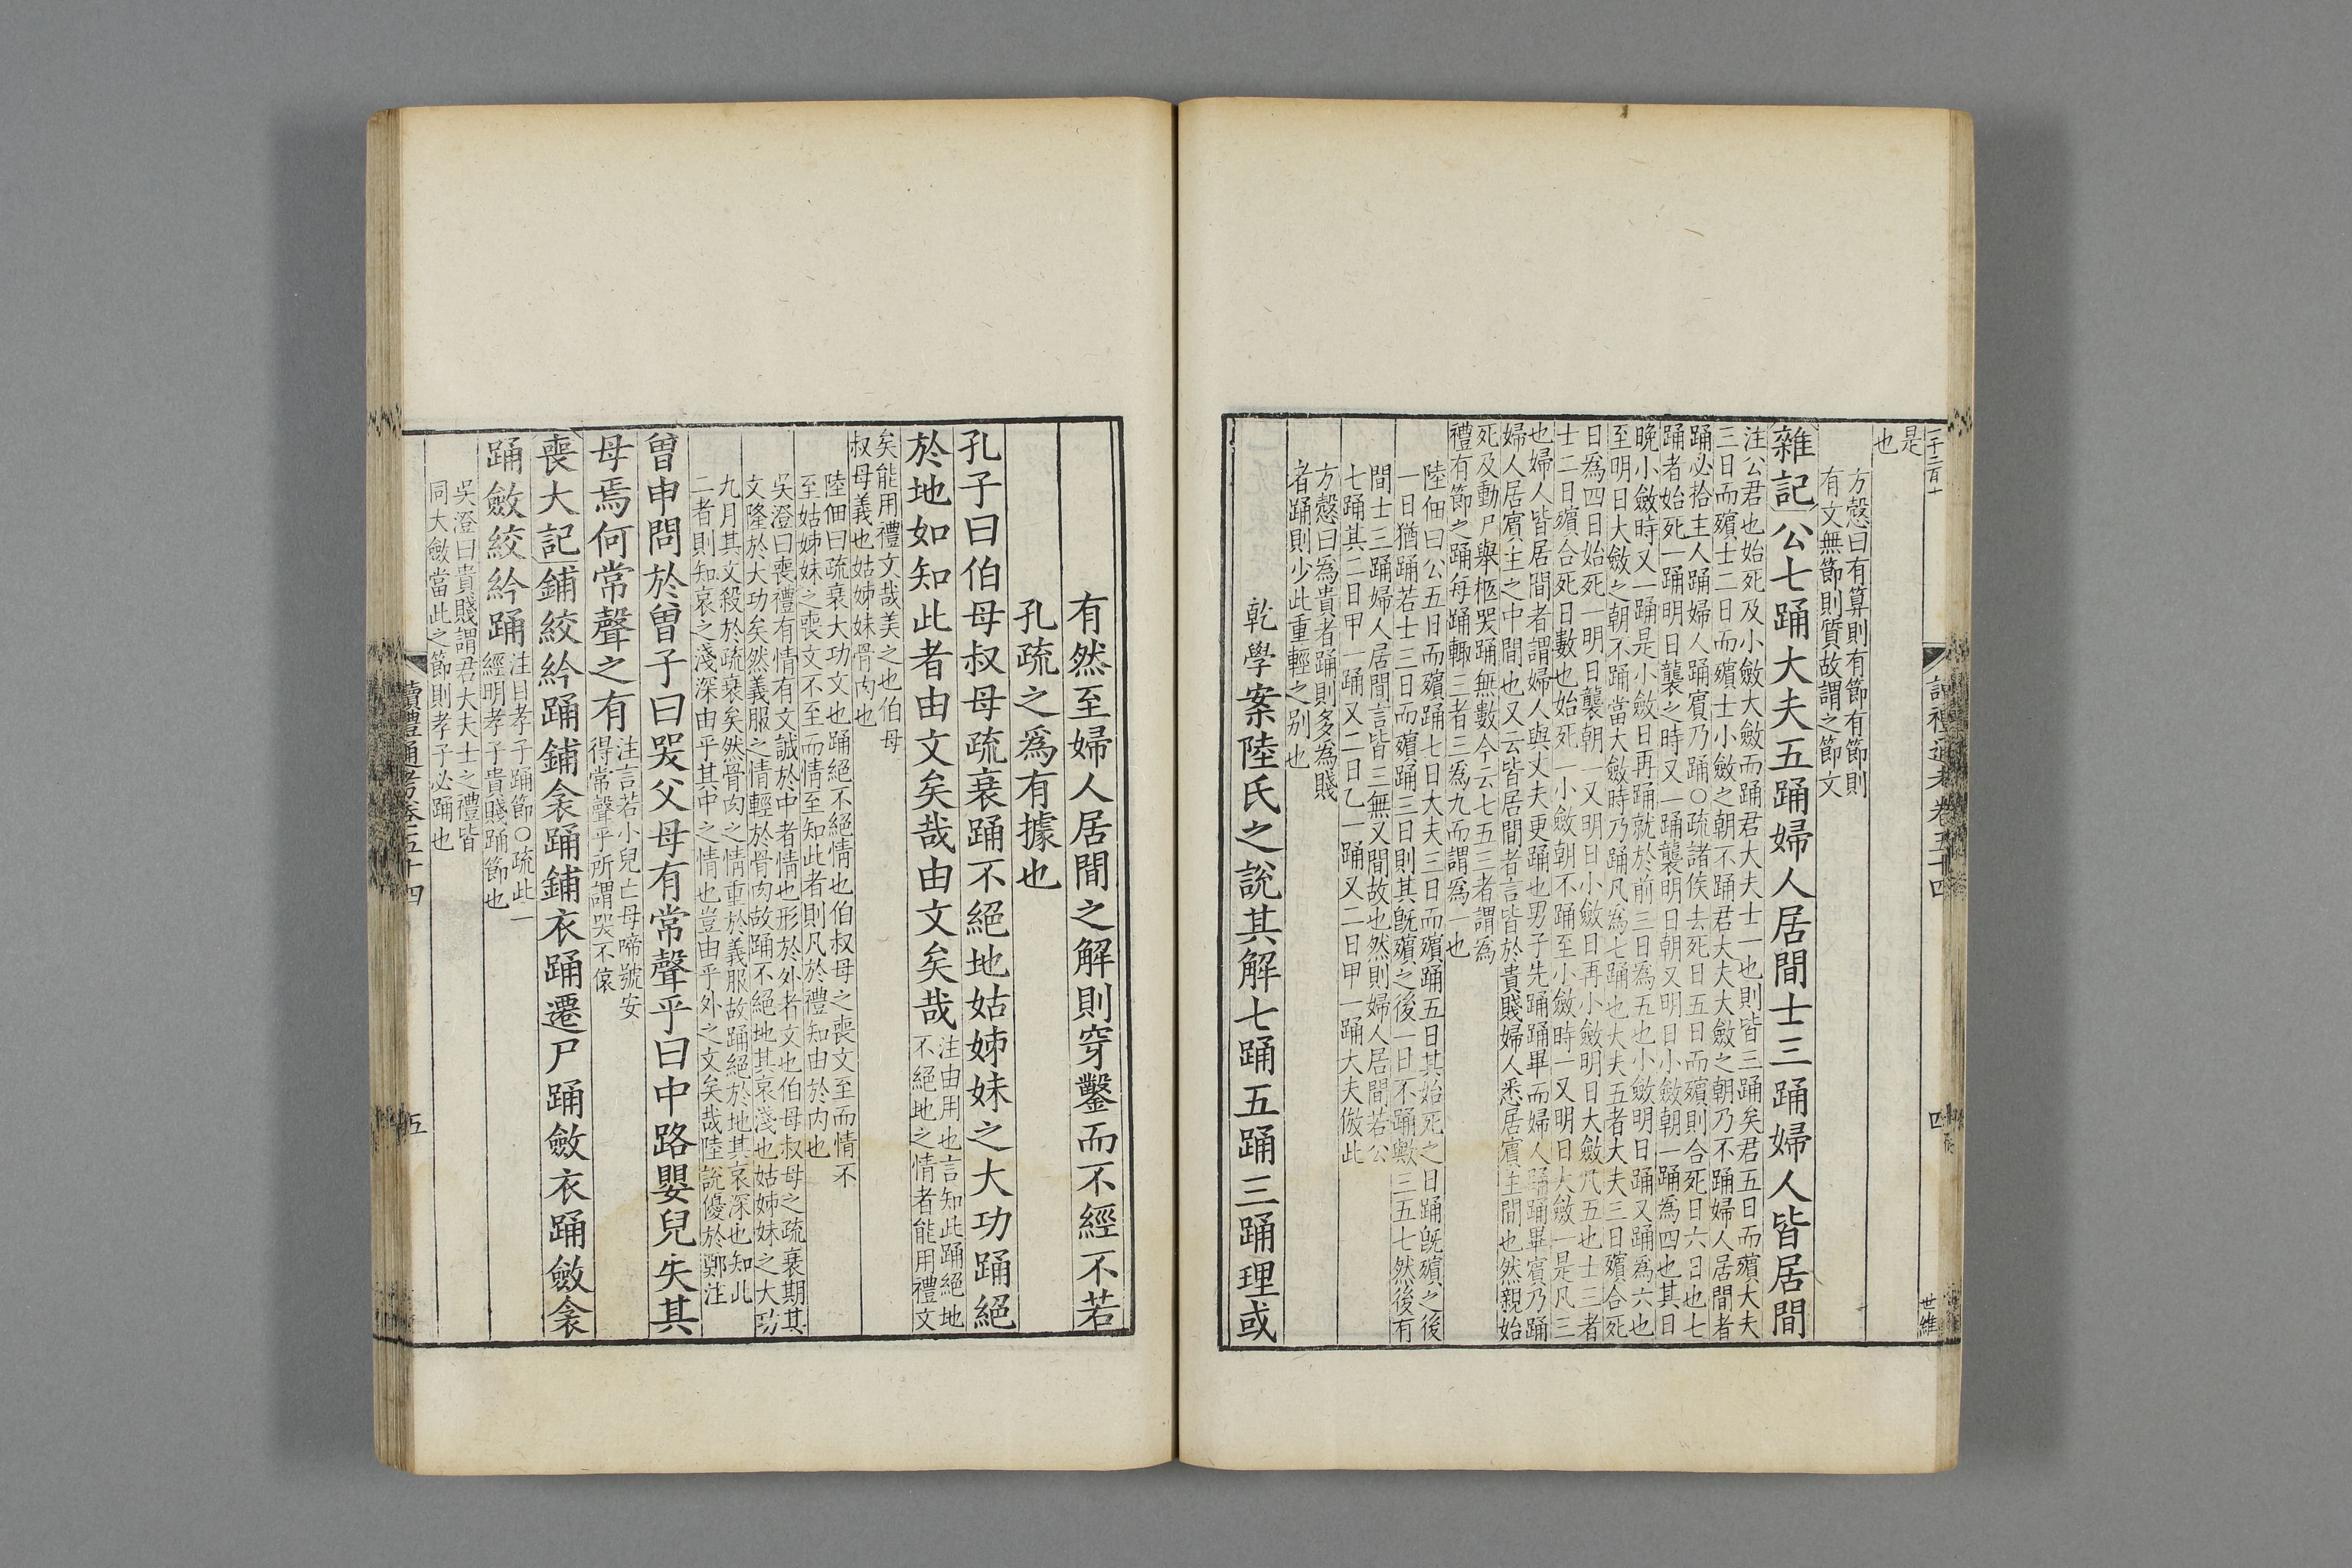 是
也
方慤曰有算則有節有節則
有文無節則質故謂之節文
雜記公七踊大夫五踊婦人居間士三踊婦人皆居間
注公君也始死及小斂大斂而踊君大夫士一也則皆三踊矣君五日而殯大夫
三日而殯士二日而殯士小斂之朝不踊君大夫大斂之朝乃不踊婦人居間者
踊必拾主人踊婦人踊賓乃踊○疏諸侯去死日五日而殯則合死日六日也七
踊者始死一踊明日襲之時又一踊襲明日朝又明日小斂朝一踊為四也其日
晚小斂時又一踊是小斂日再踊就於前三日為五也小斂明日踊又踊為六也
至明日大斂之朝不踊當大斂時乃踊凡為七踊也大夫五者大夫三日殯合死
日為四日始死一明日襲朝一又明日小斂日再小斂明日大斂凡五也士三者
士二日殯合死日數也始死一小斂朝不踊至小斂時一又明日大斂一是凡三
也婦人皆居間者謂婦人與丈夫更踊也男子先踊踊畢而婦人踊踊畢賓乃踊
婦人居賓主之中間也又云皆居間者言皆於貴賤婦人悉居賓主間也然親始
死及動尸舉柩哭踊無數今云七五三者謂為
禮有節之踊每踊輙三者三為九而謂為一也
陸佃曰公五日而殯踊七日大夫三日而殯踊五日其始死之日踊旣殯之後
一日猶踊若士三日而殯踊三日則其旣殯之後一日不踊歟三五七然後有
間士三踊婦人居間言皆三無又間故也然則婦人居間若公
七踊其二日甲一踊又二日乙一踊又二日甲一踊大夫倣此
方慤曰為貴者踊則多為賤
者踊則少此重輕之别也
乾學案陸氏之說其解七踊五踊三踊理或
讀禮通考卷五十四
四
世維
有然至婦人居間之解則穿鑿而不經不若
孔疏之爲有據也
孔子曰伯母叔母疏衰踊不絕地姑姊妹之大功踊絕
於地如知此者由文矣哉由文矣哉
注由用也言知此踊絕地
不絕地之情者能用禮文
矣能用禮文哉美之也伯母
叔母義也姑姊妹骨肉也
陸佃曰疏衰大功文也踊絕不絕情也伯叔母之喪文至而情不
至姑姊妹之喪文不至而情至知此者則凡於禮知由於内也
吳澄曰喪禮有情有文誠於中者情也形於外者文也伯母叔母之疏衰期其
文隆於大功矣然義服之情輕於骨肉故踊不絕地其哀淺也姑姊妹之大功
九月其文殺於疏衰矣然骨肉之情重於義服故踊絕於地其哀深也知此
二者則知哀之淺深由乎其中之情也豈由乎外之文矣哉陸說優於鄭注
曽申問於曽子曰哭父母有常聲乎曰中路嬰兒失其
母焉何常聲之有
注言若小兒亡母啼號安
得常聲乎所謂哭不偯
喪大記鋪絞紟踊鋪衾踊鋪衣踊遷尸踊斂衣踊斂衾
踊斂絞紟踊
注目孝子踊節○疏此一
經明孝子貴賤踊節也
吳澄曰貴賤謂君大夫士之禮皆
同大斂當此之節則孝子必踊也
讀禮通考卷五十四
五